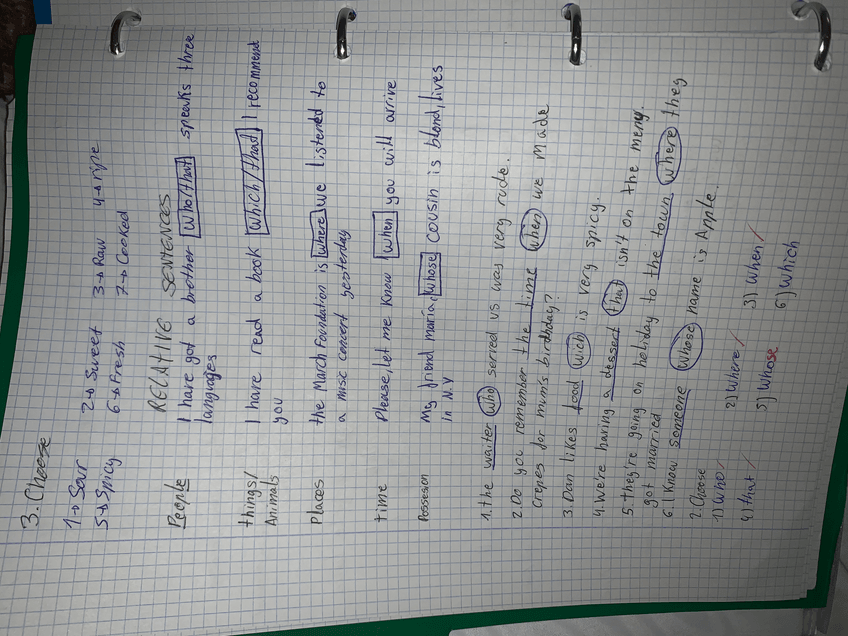 3. Choose
1→ Sour 2→ Sweet 3→ Raw 4→ ripe
5→ Spicy 6→ Fresh 7→ Cooked
RELATIVE SENTENCES
People I have got a brother who/that speaks three
languages
things/ I have read a book which/that I recommend
Animals you
Places the March Foundation is where we listened to
a misc concert yesterday
time Please, let me know when you will arrive
Possesion My friend maria, whose cousin is blond, lives
In N.Y
1. the waiter who served us was very rude.
2. Do you remember the time when we made
crepes for mum's birthday?
3. Dan likes food wich is very spicy.
4. We're having a dessert that isn't on the meny.
5. they're going on holiday to the town where they
got married
6. I know someone whose name is Apple.
2. Choose
1) Who 2) Where 3) When
4) that 5) Whose 6) Which